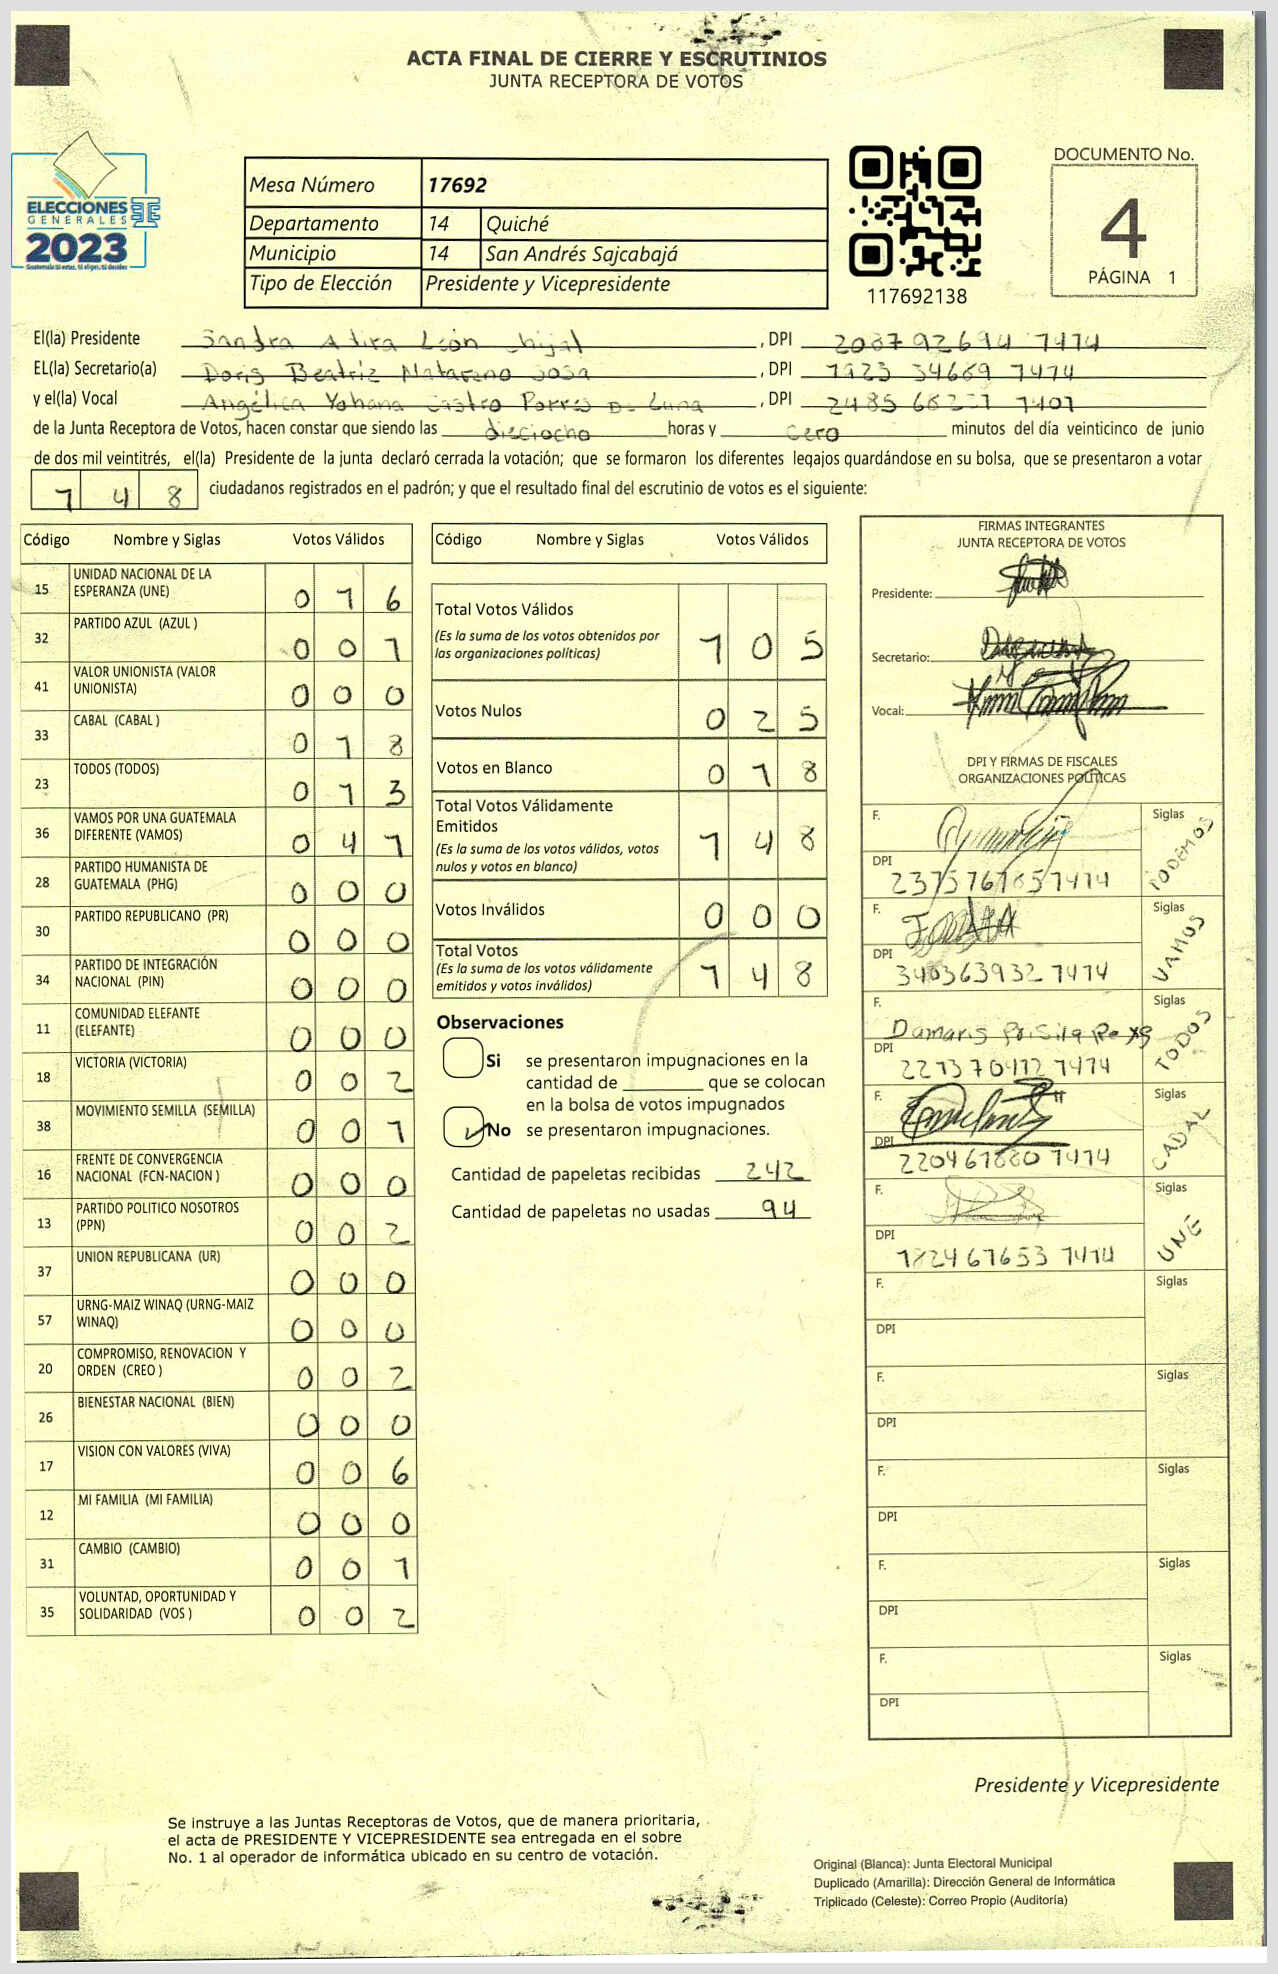 ACTA FINAL DE CIERRE Y ESCRUTINIOS
JUNTA RECEPTORA DE VOTOS
ELECCIONES
GENERALES
2023
Guatemala tú estas, tú eliges, tú decides
Mesa Número 17692
Departamento 14 Quiché
Municipio 14 San Andrés Sajcabajá
Tipo de Elección Presidente y Vicepresidente
117692138
DOCUMENTO No.
4
PÁGINA 1
El(la) Presidente Sandra León , DPI 2087 92694 1414
EL(la) Secretario(a) Doris Beatriz Matareno Sosa , DPI 1923 34689 1414
y el(la) Vocal Angélica Yohana Castro Porres De Luna , DPI 2485 1401
de la Junta Receptora de Votos, hacen constar que siendo las dieciocho horas y cero minutos del día veinticinco de junio
de dos mil veintitrés, el(la) Presidente de la junta declaró cerrada la votación; que se formaron los diferentes legajos guardándose en su bolsa, que se presentaron a votar
1 4 8 ciudadanos registrados en el padrón; y que el resultado final del escrutinio de votos es el siguiente:
Código Nombre y Siglas Votos Válidos
15 UNIDAD NACIONAL DE LA
ESPERANZA (UNE) 0 1 6
32 PARTIDO AZUL (AZUL ) 0 0 1
41 VALOR UNIONISTA (VALOR
UNIONISTA) 0 0 0
33 CABAL (CABAL ) 0 1 8
23 TODOS (TODOS) 0 1 3
36 VAMOS POR UNA GUATEMALA
DIFERENTE (VAMOS) 0 4 1
28 PARTIDO HUMANISTA DE
GUATEMALA (PHG) 0 0 0
30 PARTIDO REPUBLICANO (PR) 0 0 0
34 PARTIDO DE INTEGRACIÓN
NACIONAL (PIN) 0 0 0
11 COMUNIDAD ELEFANTE
(ELEFANTE) 0 0 0
18 VICTORIA (VICTORIA) 0 0 2
38 MOVIMIENTO SEMILLA (SEMILLA) 0 0 1
16 FRENTE DE CONVERGENCIA
NACIONAL (FCN-NACION ) 0 0 0
13 PARTIDO POLITICO NOSOTROS
(PPN) 0 0 2
37 UNION REPUBLICANA (UR) 0 0 0
57 URNG-MAIZ WINAQ (URNG-MAIZ
WINAQ) 0 0 0
20 COMPROMISO, RENOVACION Y
ORDEN (CREO ) 0 0 2
26 BIENESTAR NACIONAL (BIEN) 0 0 0
17 VISION CON VALORES (VIVA) 0 0 6
12 MI FAMILIA (MI FAMILIA) 0 0 0
31 CAMBIO (CAMBIO) 0 0 1
35 VOLUNTAD, OPORTUNIDAD Y
SOLIDARIDAD (VOS ) 0 0 2
Código Nombre y Siglas Votos Válidos
Total Votos Válidos
(Es la suma de los votos obtenidos por
las organizaciones políticas) 1 0 5
Votos Nulos 0 2 5
Votos en Blanco 0 1 8
Total Votos Válidamente
Emitidos
(Es la suma de los votos válidos, votos
nulos y votos en blanco) 1 4 8
Votos Inválidos 0 0 0
Total Votos
(Es la suma de los votos válidamente
emitidos y votos inválidos) 1 4 8
Observaciones
Si se presentaron impugnaciones en la
cantidad de ________ que se colocan
en la bolsa de votos impugnados
No se presentaron impugnaciones.
Cantidad de papeletas recibidas 242
Cantidad de papeletas no usadas 94
FIRMAS INTEGRANTES
JUNTA RECEPTORA DE VOTOS
Presidente:
Secretario:
Vocal:
DPI Y FIRMAS DE FISCALES
ORGANIZACIONES POLÍTICAS
F. Siglas TODEMOS
DPI
F. Siglas VAMOS
DPI 340363932 1414
F. Damaris Siglas TODOS
DPI 2213 70412 1414
F. Siglas CADAL
DPI
F. Siglas UNE
DPI 1824 67653 1414
F. Siglas
DPI
F. Siglas
DPI
F. Siglas
DPI
F. Siglas
DPI
F. Siglas
DPI
Presidente y Vicepresidente
Se instruye a las Juntas Receptoras de Votos, que de manera prioritaria,
el acta de PRESIDENTE Y VICEPRESIDENTE sea entregada en el sobre
No. 1 al operador de informática ubicado en su centro de votación.
Original (Blanca): Junta Electoral Municipal
Duplicado (Amarilla): Dirección General de Informática
Triplicado (Celeste): Correo Propio (Auditoría)